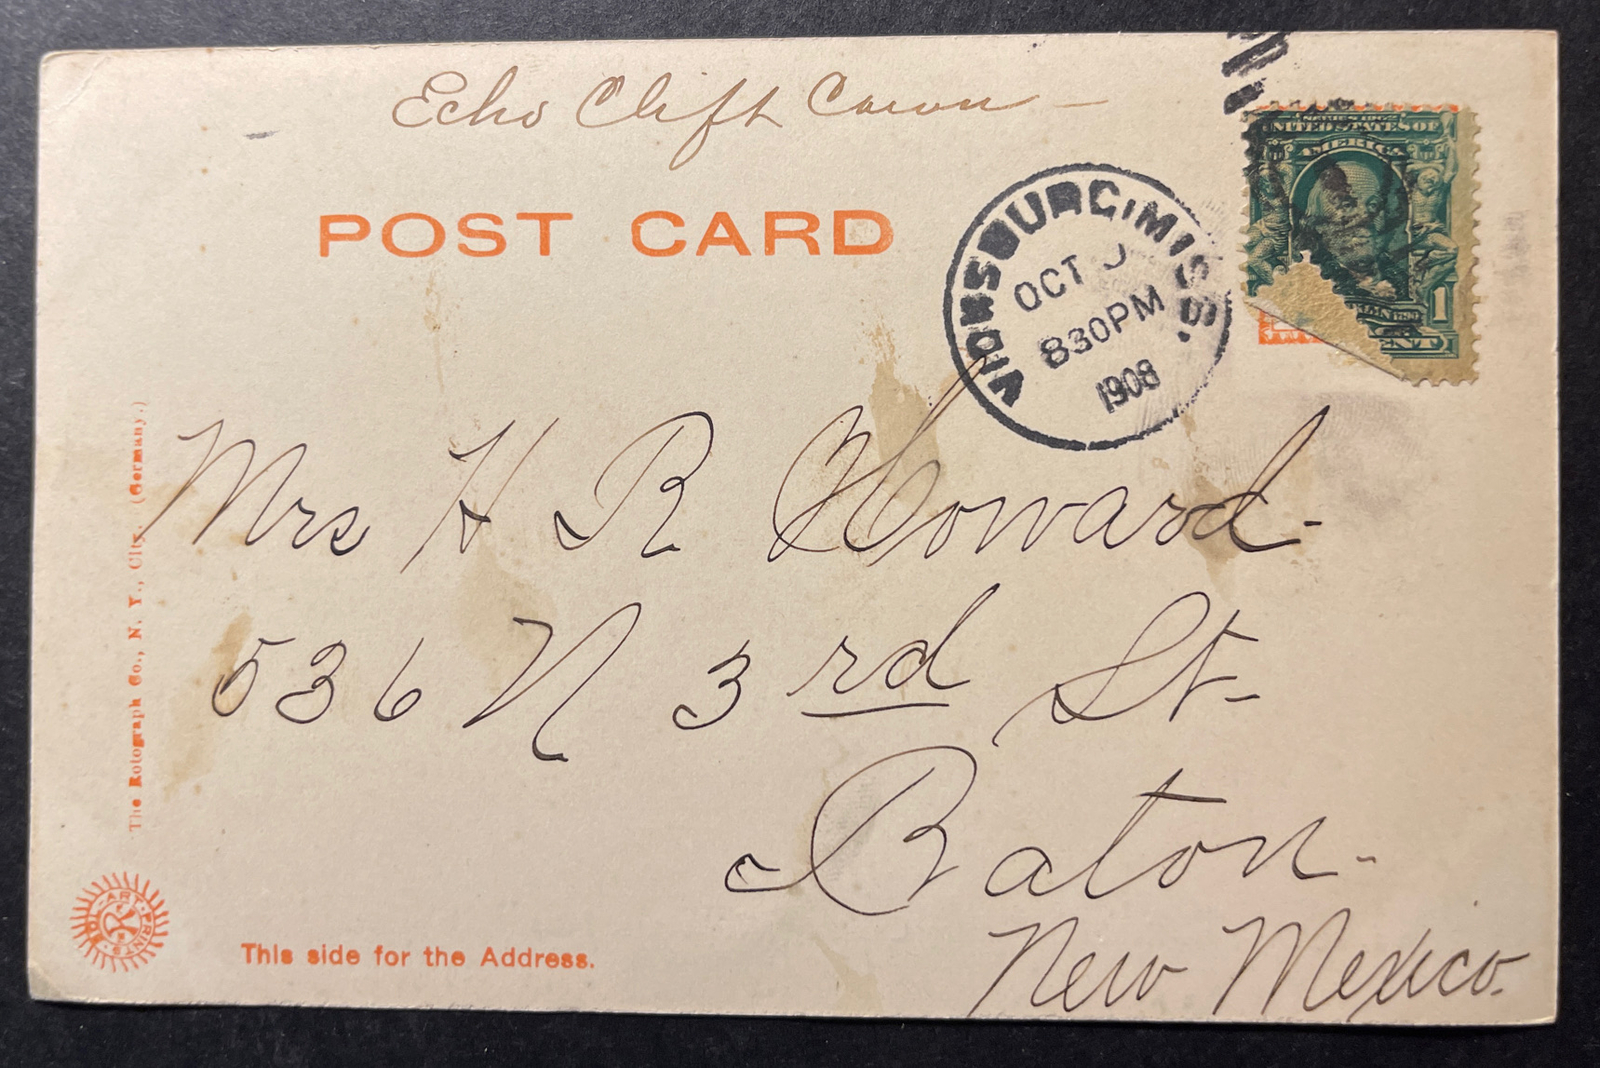 Echo Clift
POST CARD
VICKSBURG, MISS.
OCT
830PM
1908
SERIES 1902
UNITED STATES OF
AMERICA
1
CENT
Mrs H R Howard-
536 N 3rd St-
Raton-
New Mexico.
The Rotograph Co., N. Y., City. (Germany.)
SOL-ART PRINTS
This side for the Address.